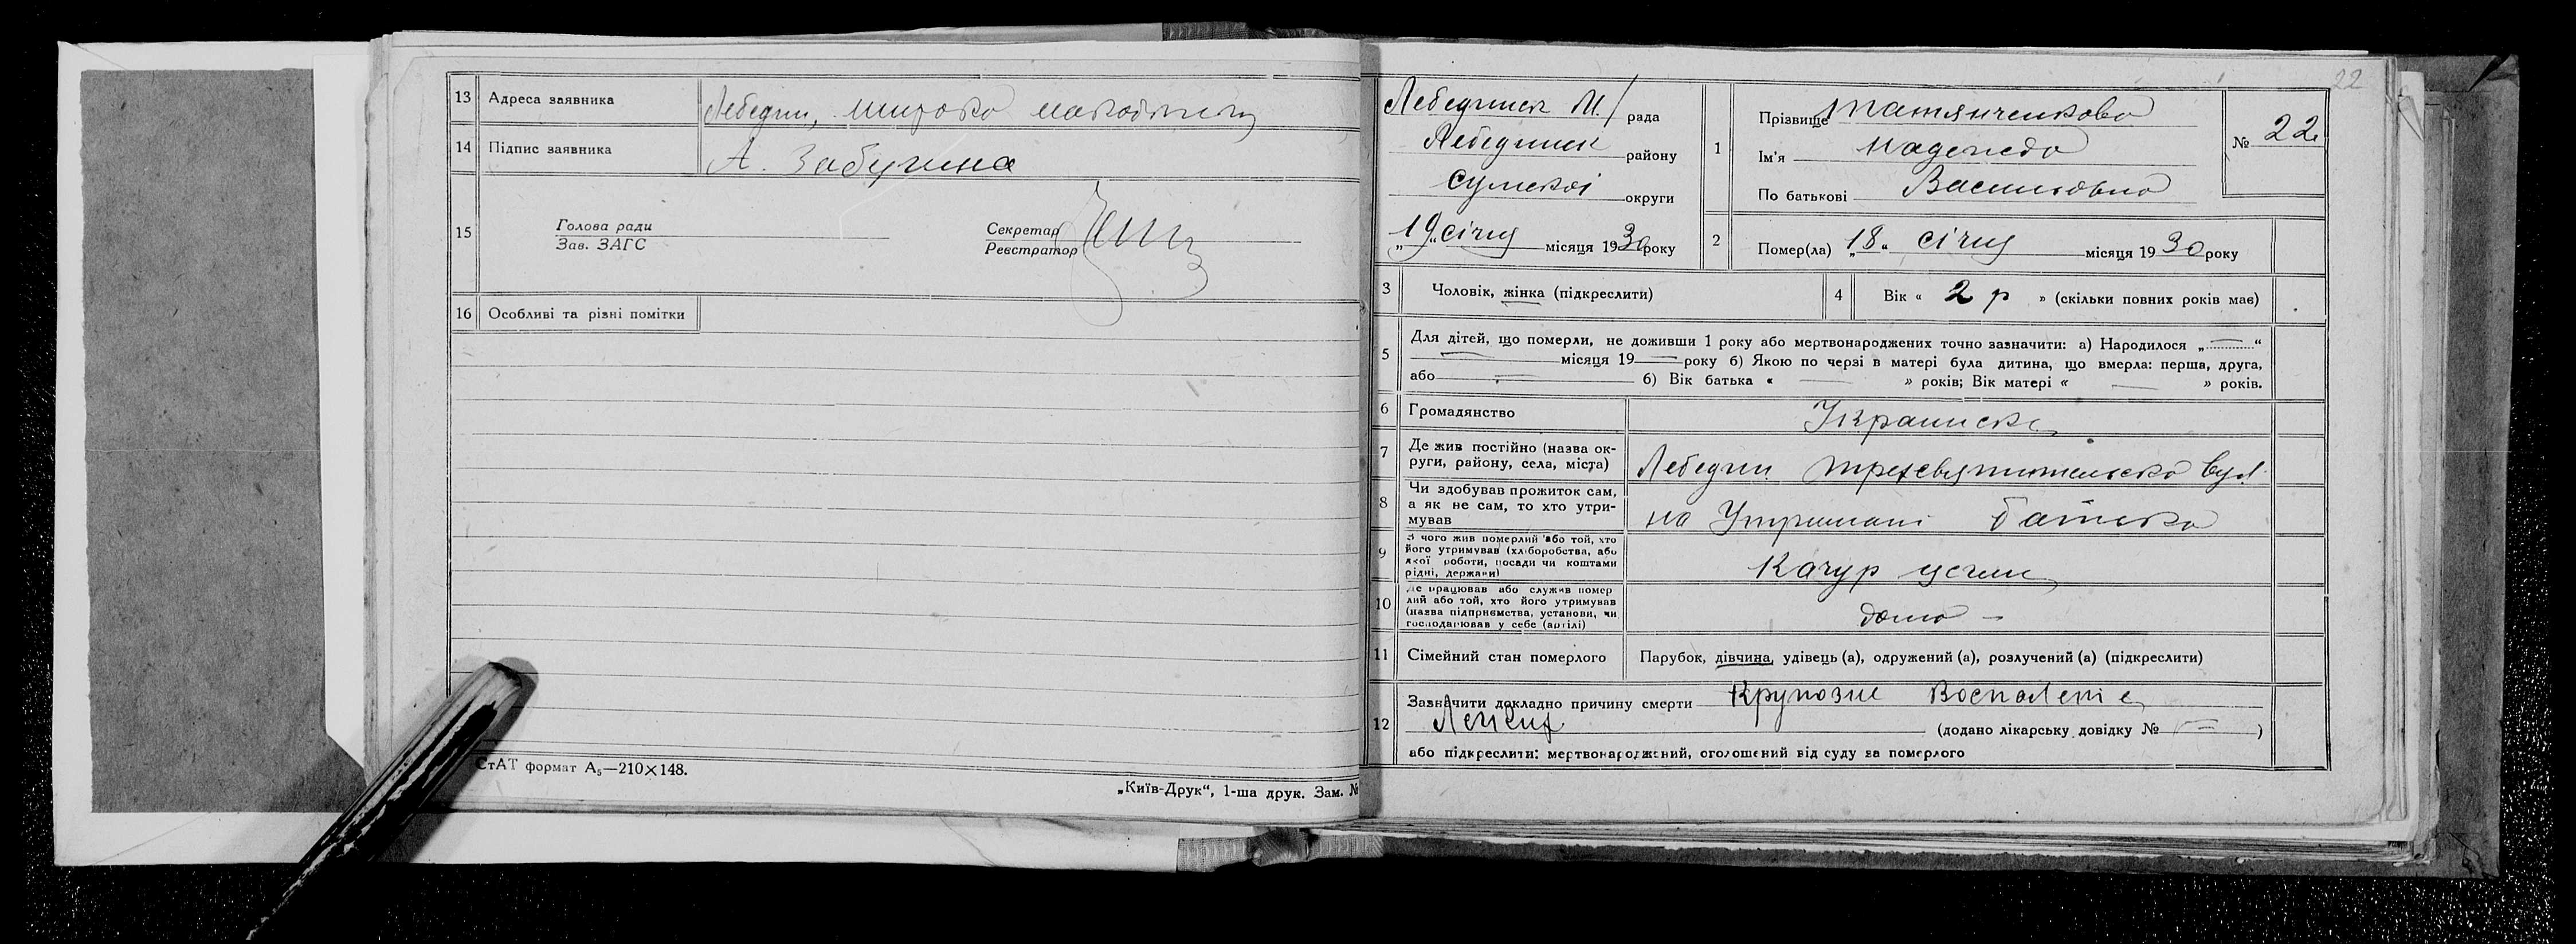 13 Адреса заявника Лебедин,
14 Підпис заявника А. Забугина
15 Голова ради
Зав. ЗАГС
Секретар
Реєстратор
16 Особливі та різні помітки
СтАТ формат А₅—210×148.
„Київ-Друк“, 1-ша друк. Зам. №
22
Лебединск М. рада
Лебединск району
Сумскоі округи
„19„ січня місяця 1930 року
1 Прізвище Татянченкова
Ім'я Надежда
По батькові Васильовна
№ 22
2 Помер(ла) „18„ січня місяця 1930 року
3 Чоловік, жінка (підкреслити)
4 Вік « 2 р » (скільки повних років має)
5 Для дітей, що померли, не доживши 1 року або мертвонароджених точно зазначити: а) Народилося „— “
— місяця 19— року б) Якою по черзі в матері була дитина, що вмерла: перша, друга,
або — б) Вік батька « — » років; Вік матері « — » років.
6 Громадянство Украинске
7 Де жив постійно (назва ок-
руги, району, села, міста) Лебедин Трехсвятительска вул.
8 Чи здобував прожиток сам,
а як не сам, то хто утри-
мував на Утримані батька
9 З чого жив померлий або той, хто
його утримував (хліборобства, або
якої роботи, посади чи коштами
рідні, держави)
10 Де працював або служив помер
лий або той, хто його утримував
(назва підприємства, установи, чи
господарював у себе (артілі) дома —
11 Сімейний стан померлого Парубок, дівчина, удівець (а), одружений (а), розлучений (а) (підкреслити)
12 Зазначити докладно причину смерти Крупозне Воспаление
Легких (додано лікарську довідку № — )
або підкреслити: мертвонароджений, оголошений від суду за померлого